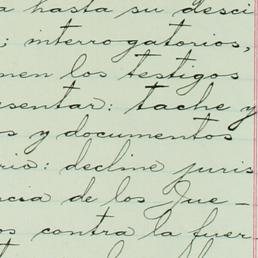 a hasta su desci
; interrogatorios,
nen los testigos
esentar: tache y
os y documentos
rio: decline juris
ncia de los Jue-
os contra la fuer